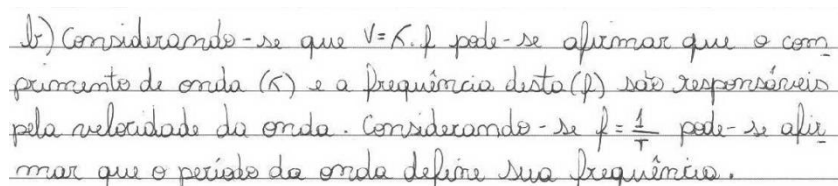 b) Considerando-se que V=λ.f pode-se afirmar que o com
primento de onda (λ) e a frequência desta (f) são responsáveis
pela velocidade da onda. Considerando-se f= 1/T pode-se afir
mar que o período da onda define sua frequência.